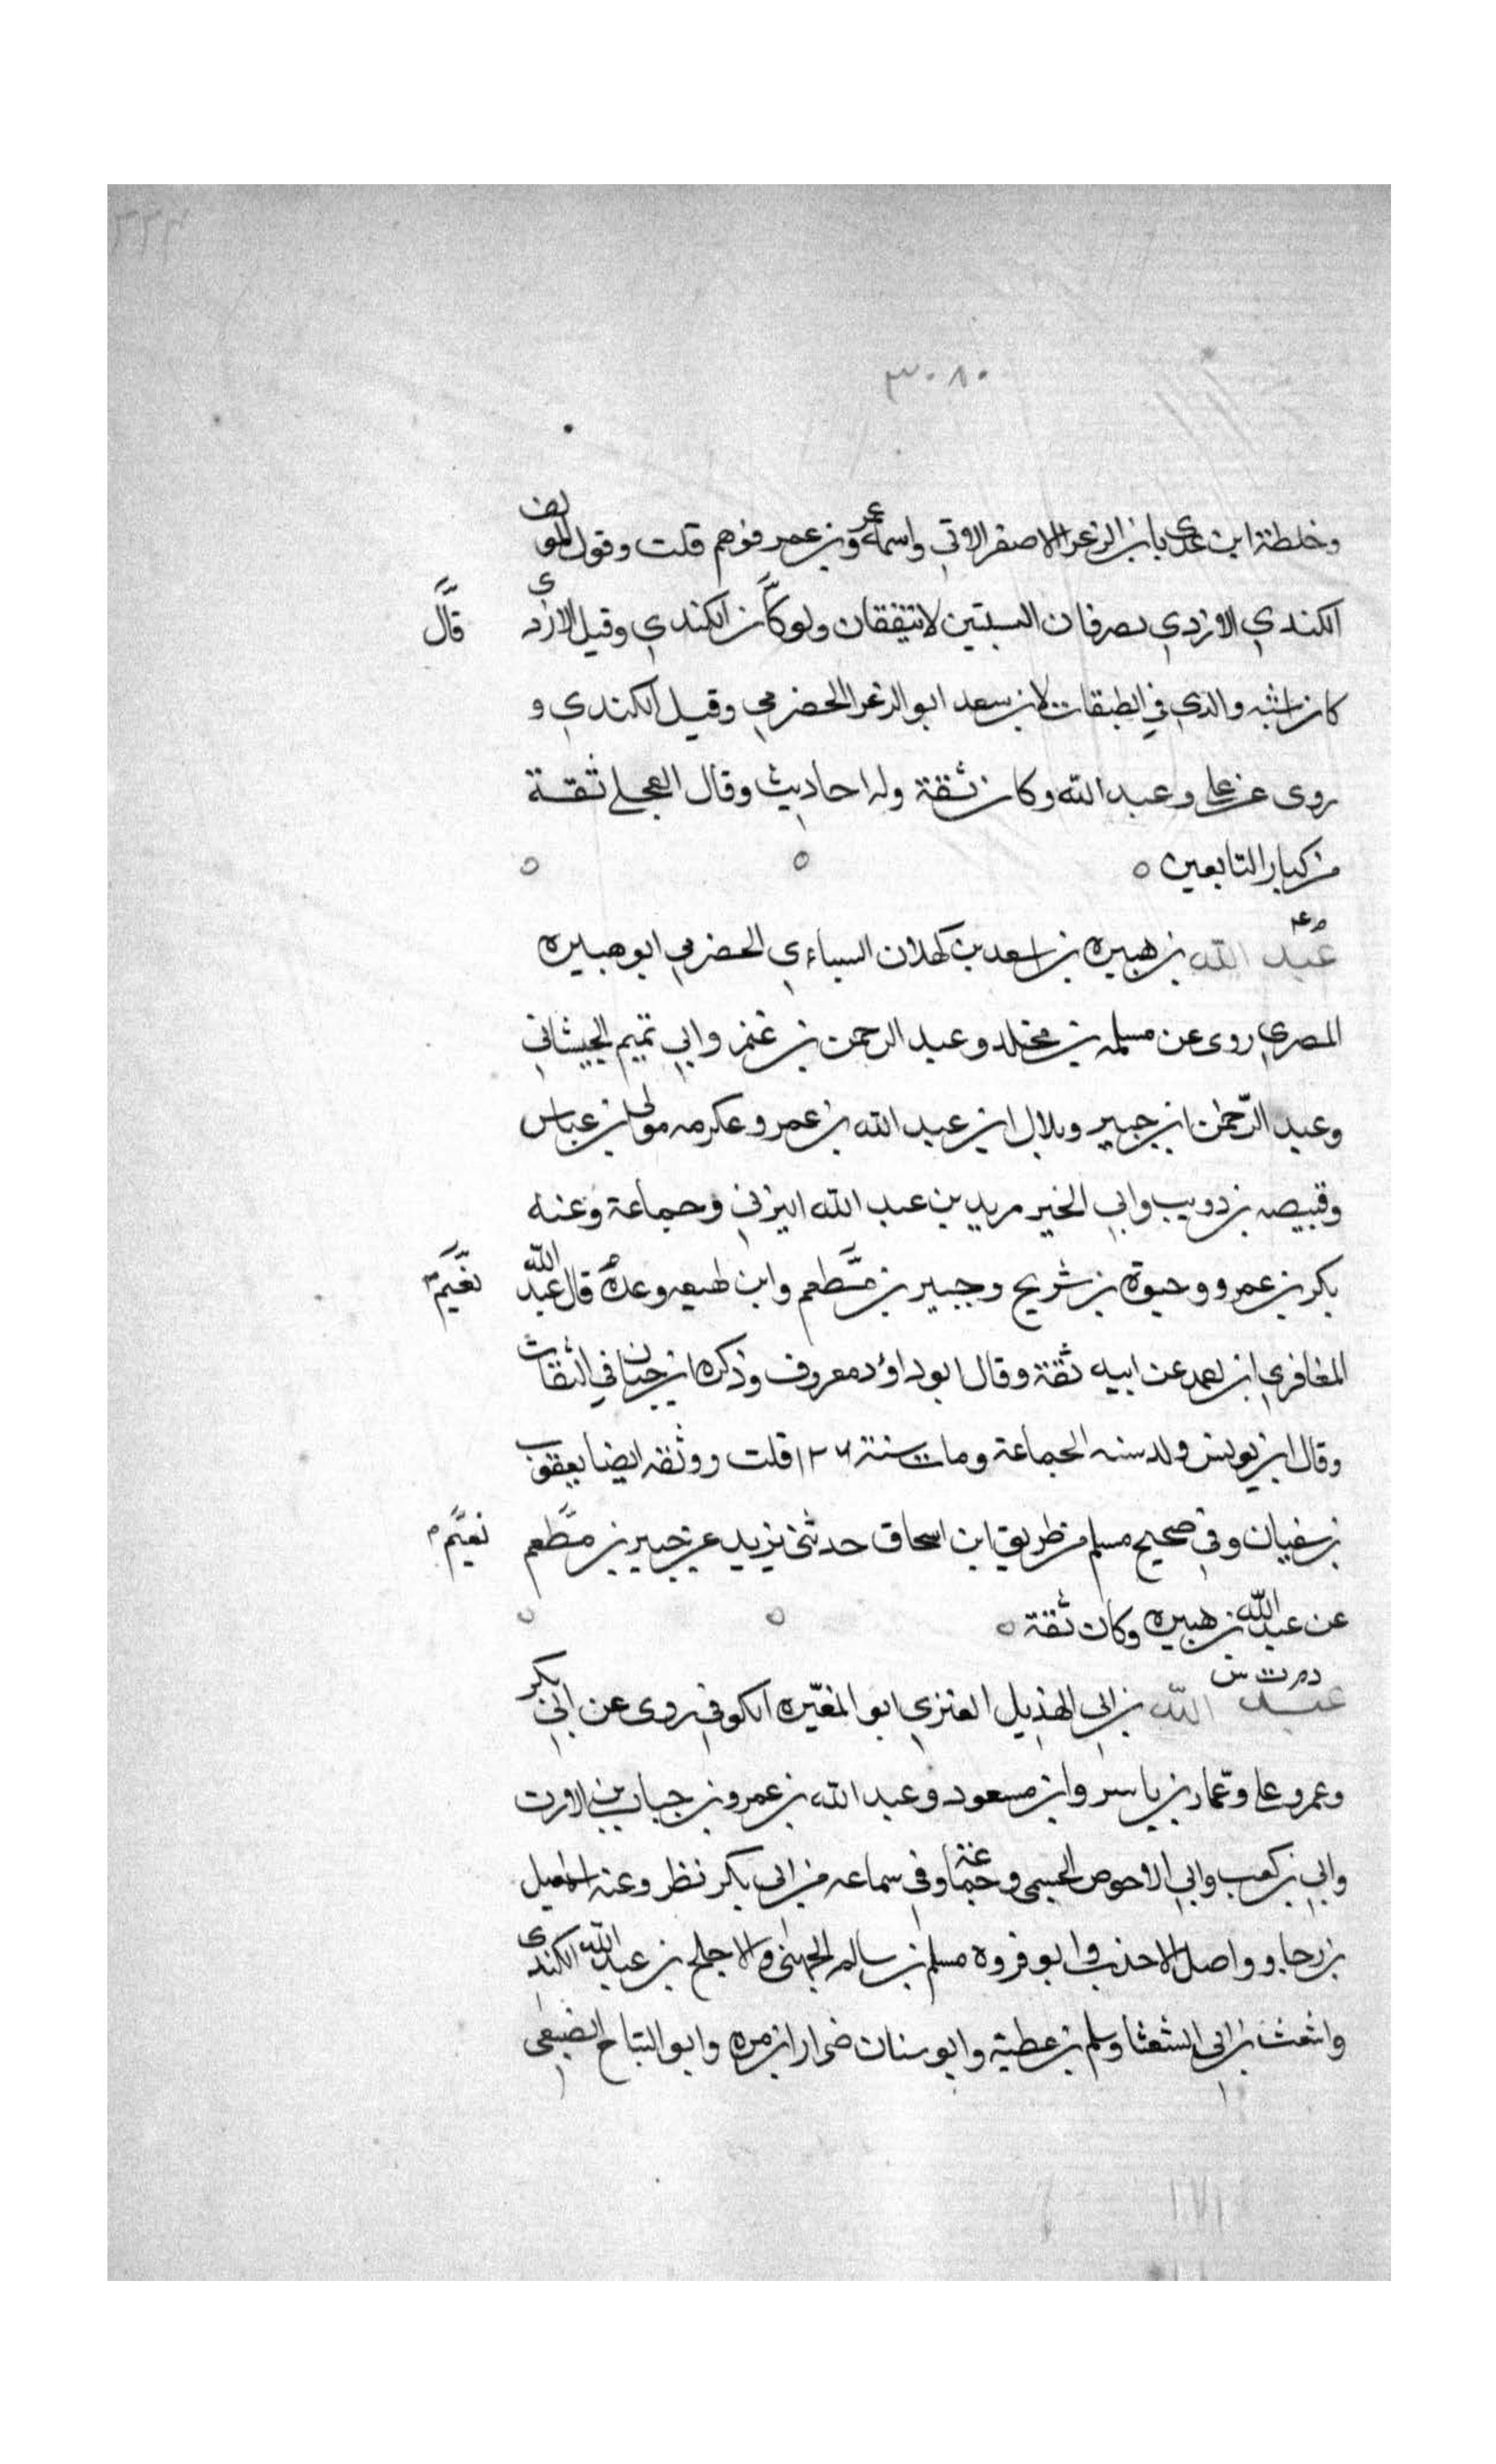 ٣٠٨٠
وخلطة ابن عدي بابي الزعرا الاصغر الاتي واسمه عمرو بن عمر فوهم قلت وقول المولف
الكندي الازدي يصرفان النسبتين لا يتفقان ولو كان الكندي وقيل الازدي قال
كان اشبه والذي في الطبقات لابن سعد ابو الزعرا الحضرمي وقيل الكندي و
روى عن علي وعبد الله وكان ثقة وله احاديث وقال العجلي ثقة
من كبار التابعين ٥
عبد الله بن هبيره بن اسعد بن كهلان السباءي الحضرمي ابو هبيره
المصري روى عن مسلمه بن مخلد وعبد الرحمن بن غنم وابي تميم الجيشاني
وعبد الرحمن ابن جبير وبلال ابن عبد الله بن عمر وعكرمه مولى ابن عباس
وقبيصه بن دويب وابي الخير مريد بن عبد الله اليزني وجماعة وعنه
بكر بن عمرو وحيوة بن شريح وجبير بن مطعم وابن لهيعه وعدة قال عبد الله نعيم
المغافري ابن احمد عن ابيه ثقة وقال ابو داؤد معروف وذكره ابن حبان في الثقات
وقال ابن يونس ولد سنه الجماعة ومات سنة ١٢٦ قلت ووثقه ايضا يعقوب
بن سفيان وفي صحيح مسلم من طريق ابن اسحاق حدثني يزيد عن جبير بن مطعم نعيم
عن عبد الله بن هبيره وكان ثقة ٥
عبد الله بن ابي الهذيل العنزي ابو المغيره الكوفي روى عن ابي بكر
وعمر وعلي وعمار بن ياسر وابن مسعود وعبد الله بن عمرو بن جباب بن الارت
وابي بن كعب وابي الاحوص الجسمي وجماعة وفي سماعه من ابي بكر نظر وعنه اسمعيل
بن رجا وواصل الاحذب وابو فروه مسلم بن سالم الجهني والاجلح بن عبد الله الكندي
واشعث بن ابي الشعثا وسلم بن عطية وابو سنان ضرار ابن مره وابو التياح الضبعي